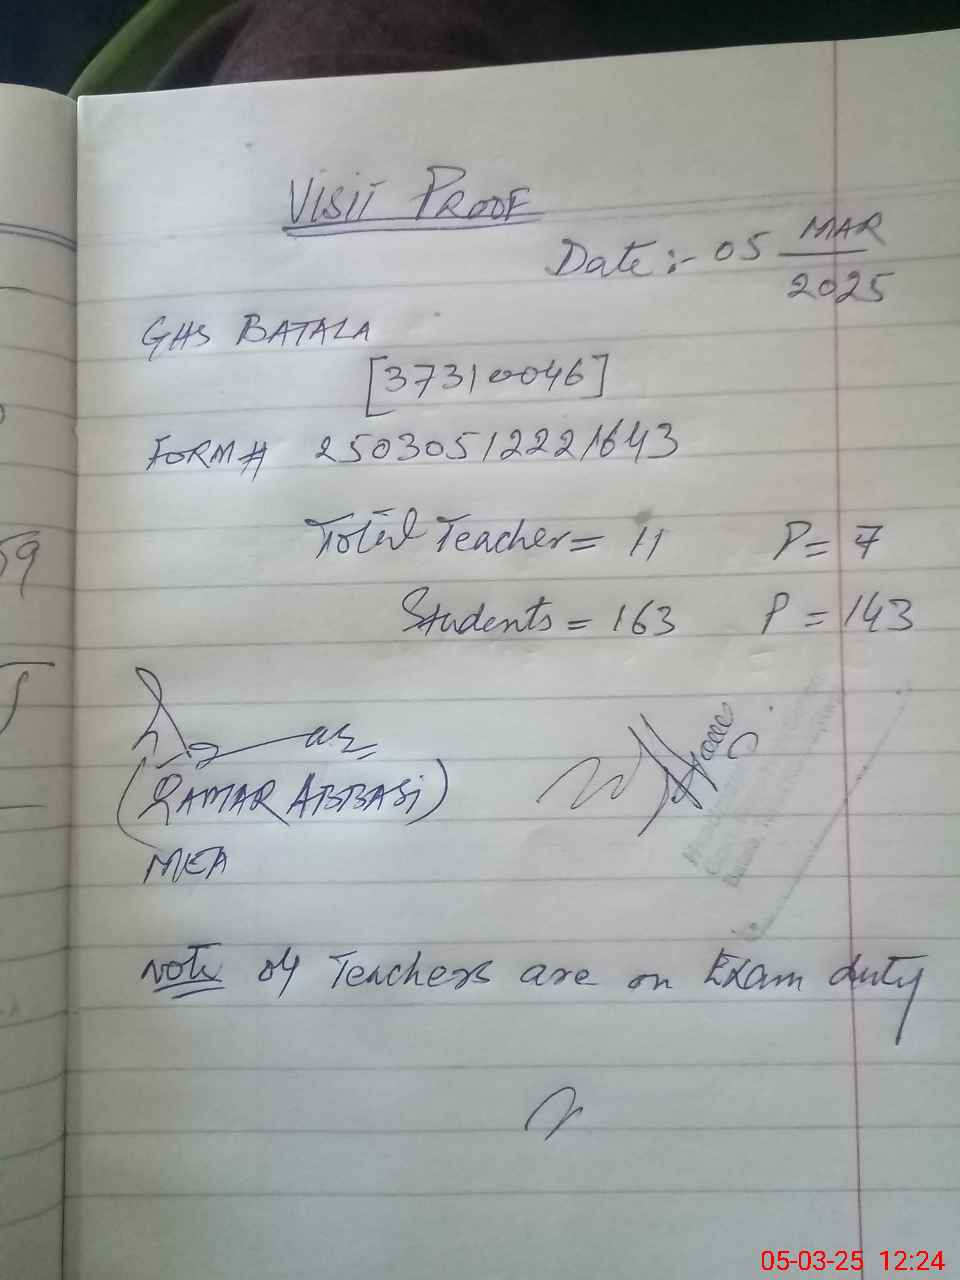 Visit Proof
Date :- 05 MAR
2025
GHS BATALA
[37310046]
FORM # 25030512221643
Total Teacher = 11 P = 7
Students = 163 P = 143
(QAMAR ABBASI)
MEA
Note 04 Teachers are on Exam duty
59
05-03-25 12:24